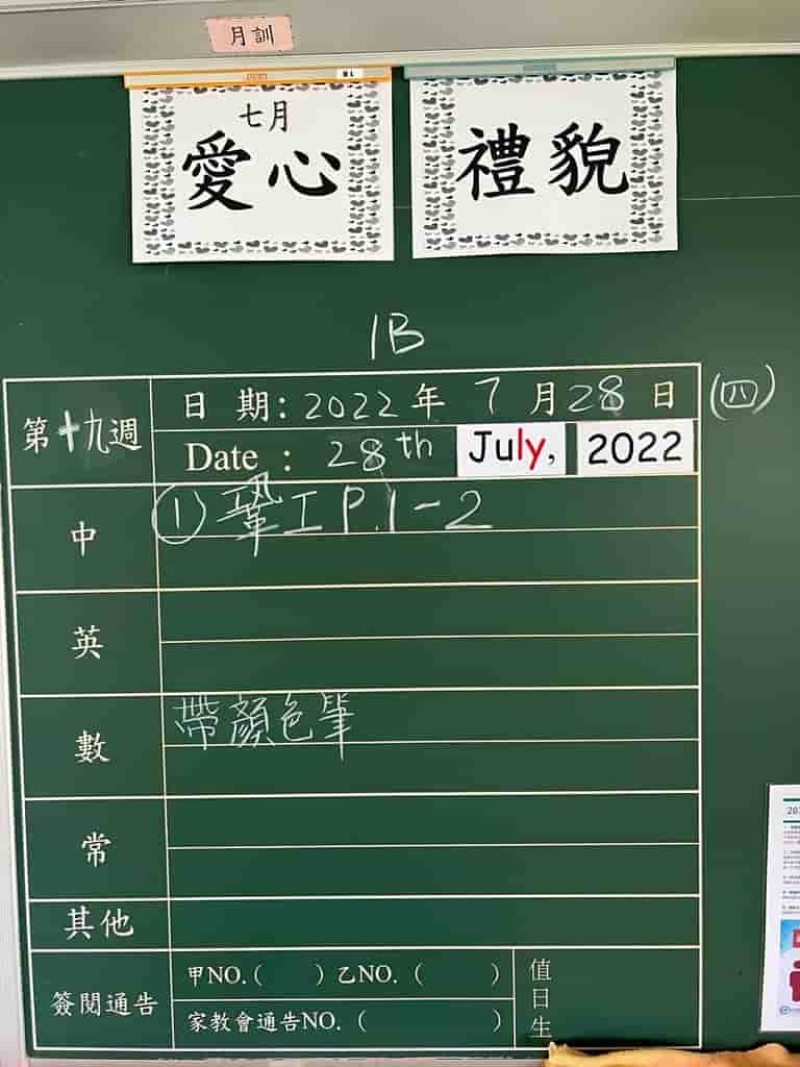 月訓
七月
愛心
禮貌
1B
第十九週
日 期: 2022 年 7 月 28 日 (四)
Date : 28th July, 2022
中
① 鞏工 P.1-2
英
數
帶顏色筆
常
其他
簽閱通告
甲NO.( ) 乙NO.( )
家教會通告NO.( )
值日生